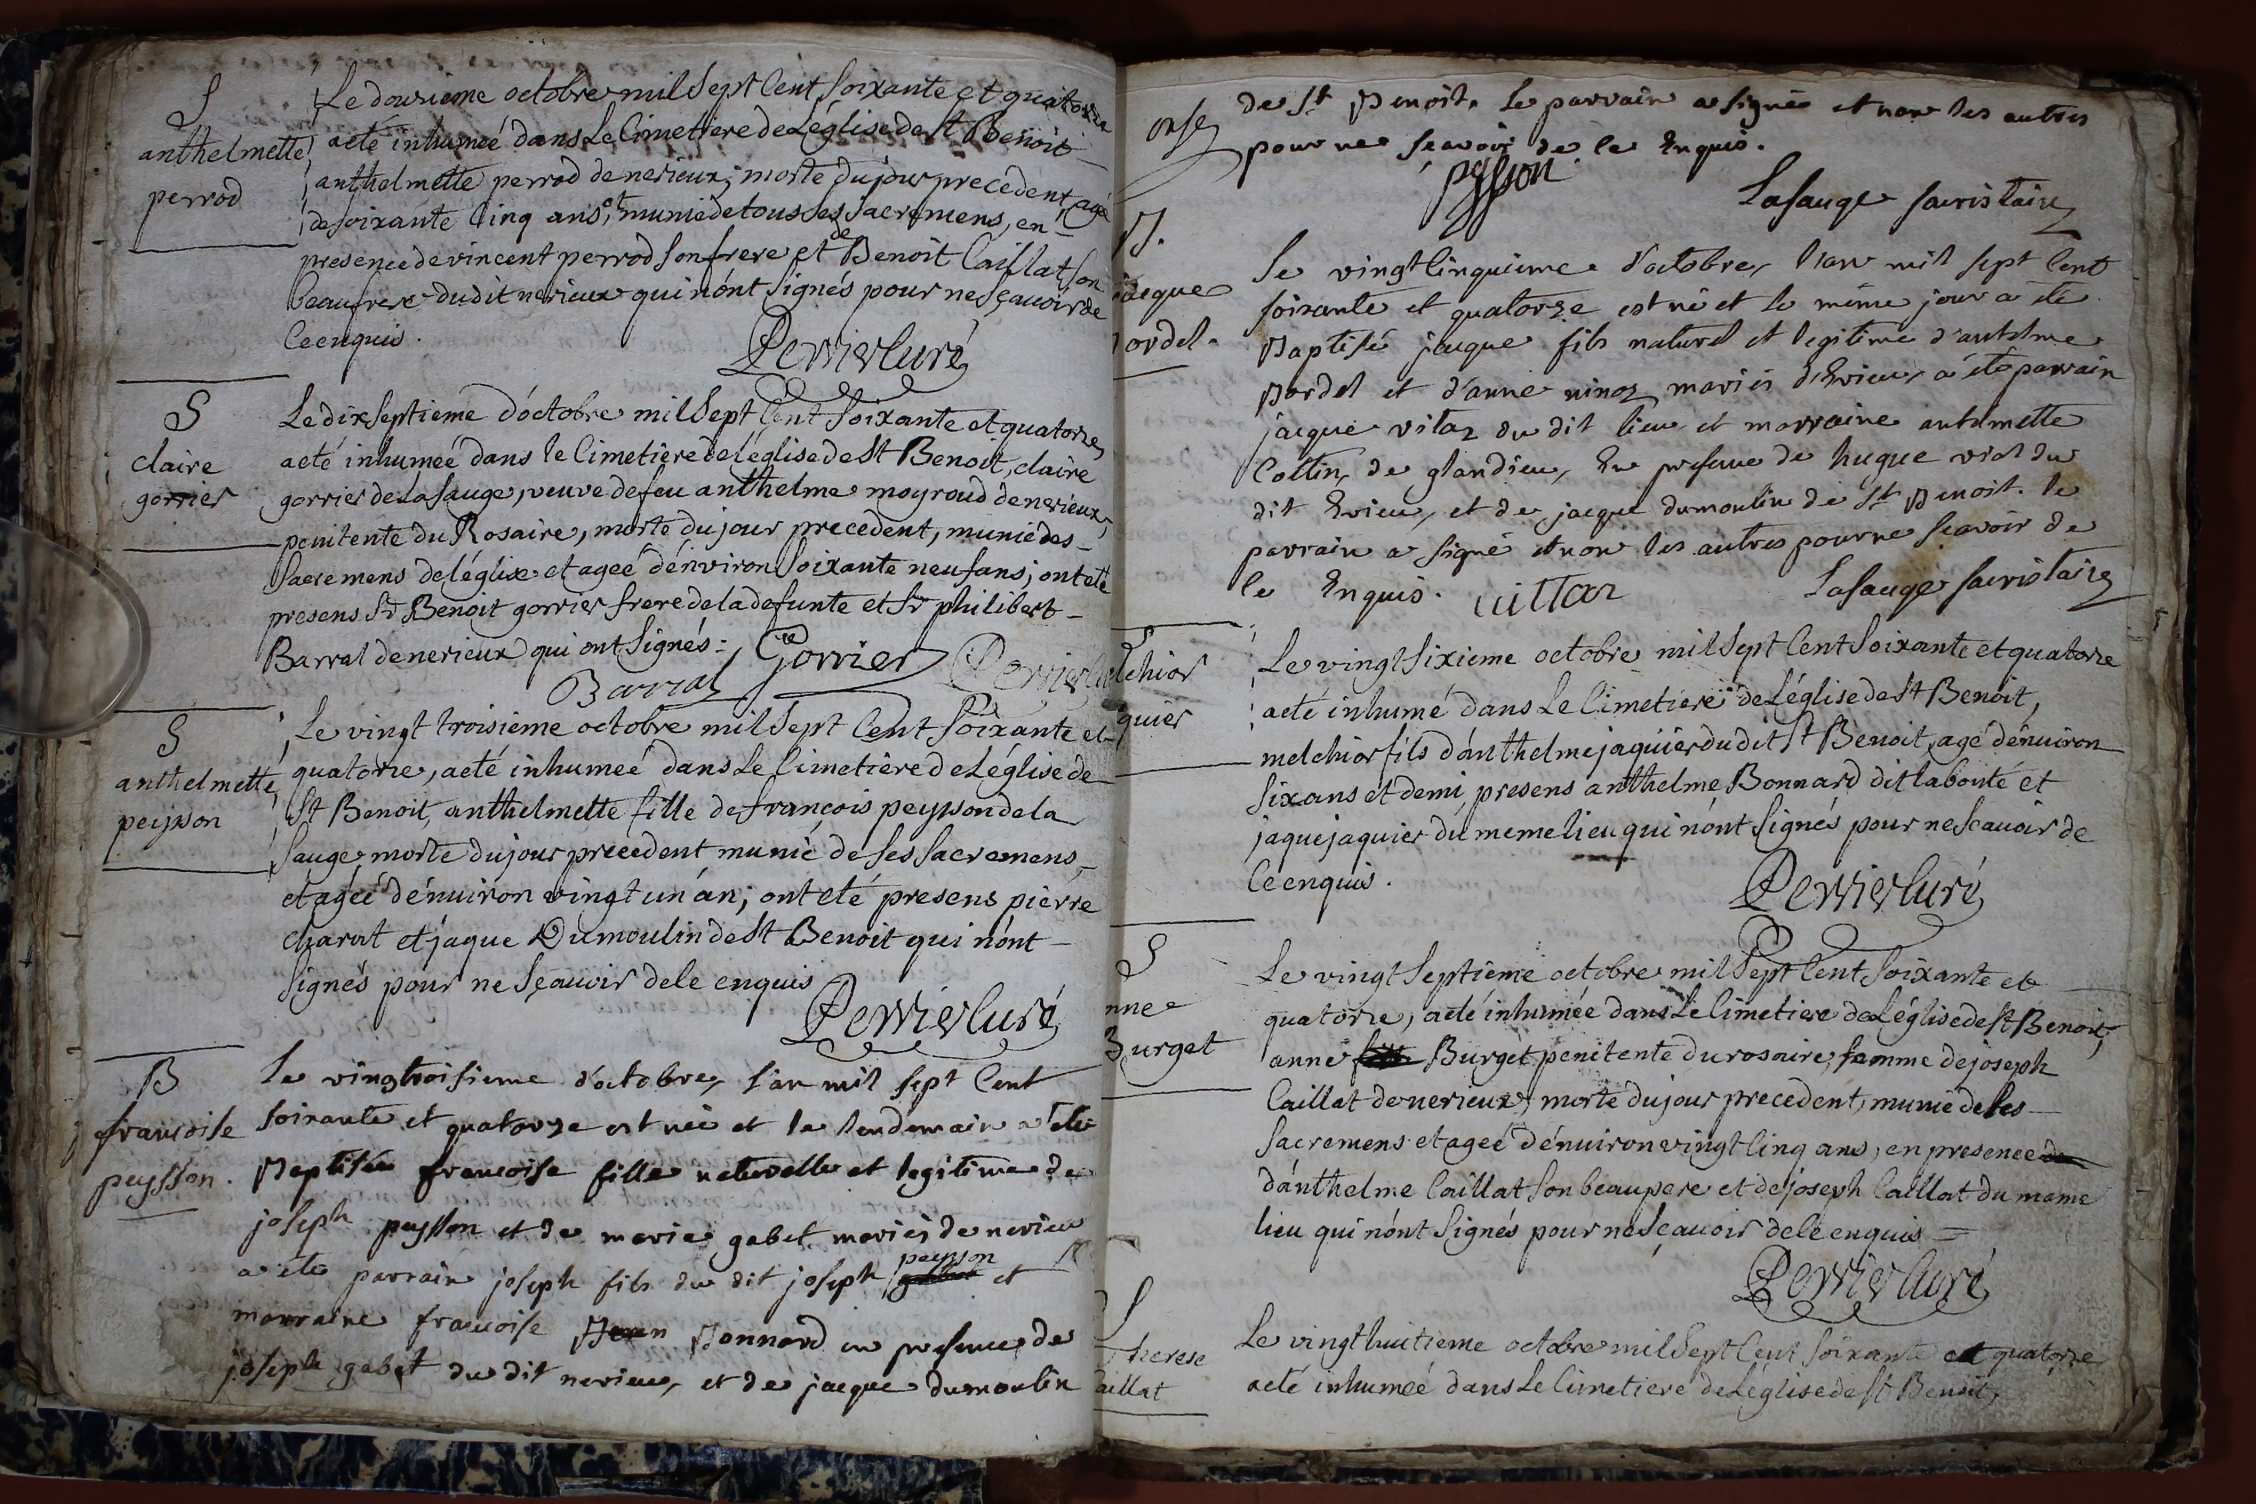 S
anthelmette
perrod
Le douzieme octobre mil Sept Cent Soixante et quatorze
a eté inhumeé dans Le Cimetiere de Léglise de St Benoit
anthelmette perrod de nerieux, morte du jour precedent, agé
de soixante Cinq ans, et munie de tous ses Sacremens, en
presence de vincent perrod son frere et de Benoit Caillat son
beaufrere du dit nerieux qui nónt Signés pour ne sçauoir de
Ce enquis.
Perrier Curé
S
claire
gorrier
Le dix septieme dóctobre mil Sept Cent Soixante et quatorze
a eté inhumeé dans le Cimetiere de léglise de St Benoit, claire
gorrier de La Sauge, veuve de feu anthelme moyroud de nerieux,
penitente du Rosaire, morte du jour precedent, munie des
Sacremens de léglise et ageé dénviron Soixante neuf ans; ont eté
presens Sr Benoit gorrier frere de la defunte et Sr philibert
Barral de nerieux qui ont Signés: Gorrier
Barral Perrier Cu
S
anthelmette
peysson
Le vingt troisieme octobre mil Sept Cent Soixante et
quatorze, a eté inhumeé dans Le Cimetiere de Léglise de
St Benoit, anthelmette fille de françois peysson de la
Sauge morte du jour precedent munie de ses Sacremens,
et ageé dénuiron vingt un án; ont eté presens pierre
charat et jaque Dumoulin de St Benoit qui nónt
Signés pour ne Sçauoir de le enquis
Perrier Curé
B
francoise
peysson.
Le vingtroisieme d'octobre, l'an mil sept Cent
soixante et quatorze est née et le lendemain a été
Baptisée francoise fille naturelle et legitime de
joseph peysson et de marie gabet mariés de nerieu
a été parrain joseph fils du dit joseph peysson et
marraine francoise Bonnard en presence de
joseph gabet du dit nerieu, et de jacque dumoulin
de St Benoit. Le parrain a signé et non les autres
pour ne scavoir de le Enquis.
pysson
Lasauge sacristain
B.
jacque
Bordel.
Le vingt Cinquieme d'octobre, l'an mil sept Cent
soixante et quatorze est né et le même jour a été
Baptisé jacque fils naturel et legitime d'antelme
Bordel et d'anne ninoz mariés d'Evieu, a été parrain
jacque vitaz du dit lieu et marraine antelmette
Cottin, de glandieu, En presence de hugue vial du
dit Evieu, et de jacque dumoulin de St Benoit. le
parrain a signé et non les autres pour ne scavoir de
le Enquis. uittaz Lasauge sacristain
S
lchior
quier
Le vingt Sixieme octobre mil Sept Cent Soixante et quatorze
a eté inhumé dans Le Cimetiere de Léglise de St Benoit,
melchior fils dánthelme jaquier du dit St Benoit, agé dénuiron
Six ans et demi, presens anthelme Bonnard dit labonté et
jaque jaquier du meme lieu qui nónt Signés pour ne Scauoir de
Ce enquis.
Perrier Curé
S
nne
Burget
Le vingt Septieme octobre mil Sept Cent Soixante et
quatorze, a eté inhumée dans Le Cimetiere de Léglise de St Benoit,
anne Burget penitente du rosaire, femme de joseph
Caillat de nerieux, morte du jour precedent, munie de ses
Sacremens et ageé dénuiron vingt Cinq ans, en presence
dánthelme Caillat son beaupere et de joseph Caillat du meme
lieu qui nónt Signés pour ne Sçauoir de le enquis
Perrier Curé
S
Therese
aillat
Le vingt huitieme octobre mil Sept Cent Soixante et quatorze
a eté inhumeé dans Le Cimetiere de Leglise de St Benoit,